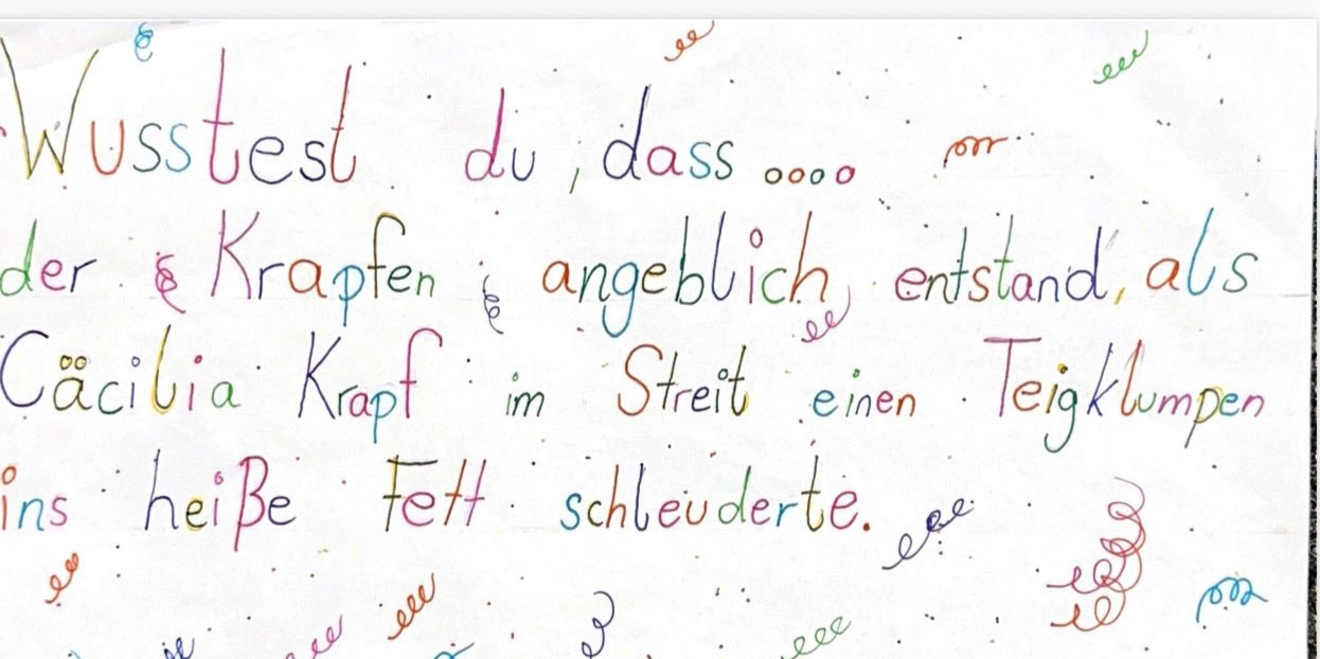 Wusstest du, dass ....
der Krapfen angeblich entstand, als
Cäcilia Krapf im Streit einen Teigklumpen
ins heiße Fett schleuderte.